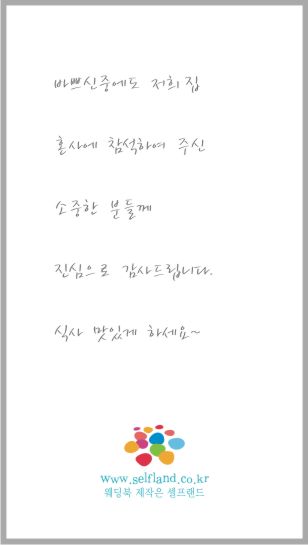 바쁘신중에도 저희집
혼사에 참석하여 주신
소중한 분들께
진심으로 감사드립니다.
식사 맛있게 하세요~
www.selfland.co.kr
웨딩북 제작은 셀프랜드